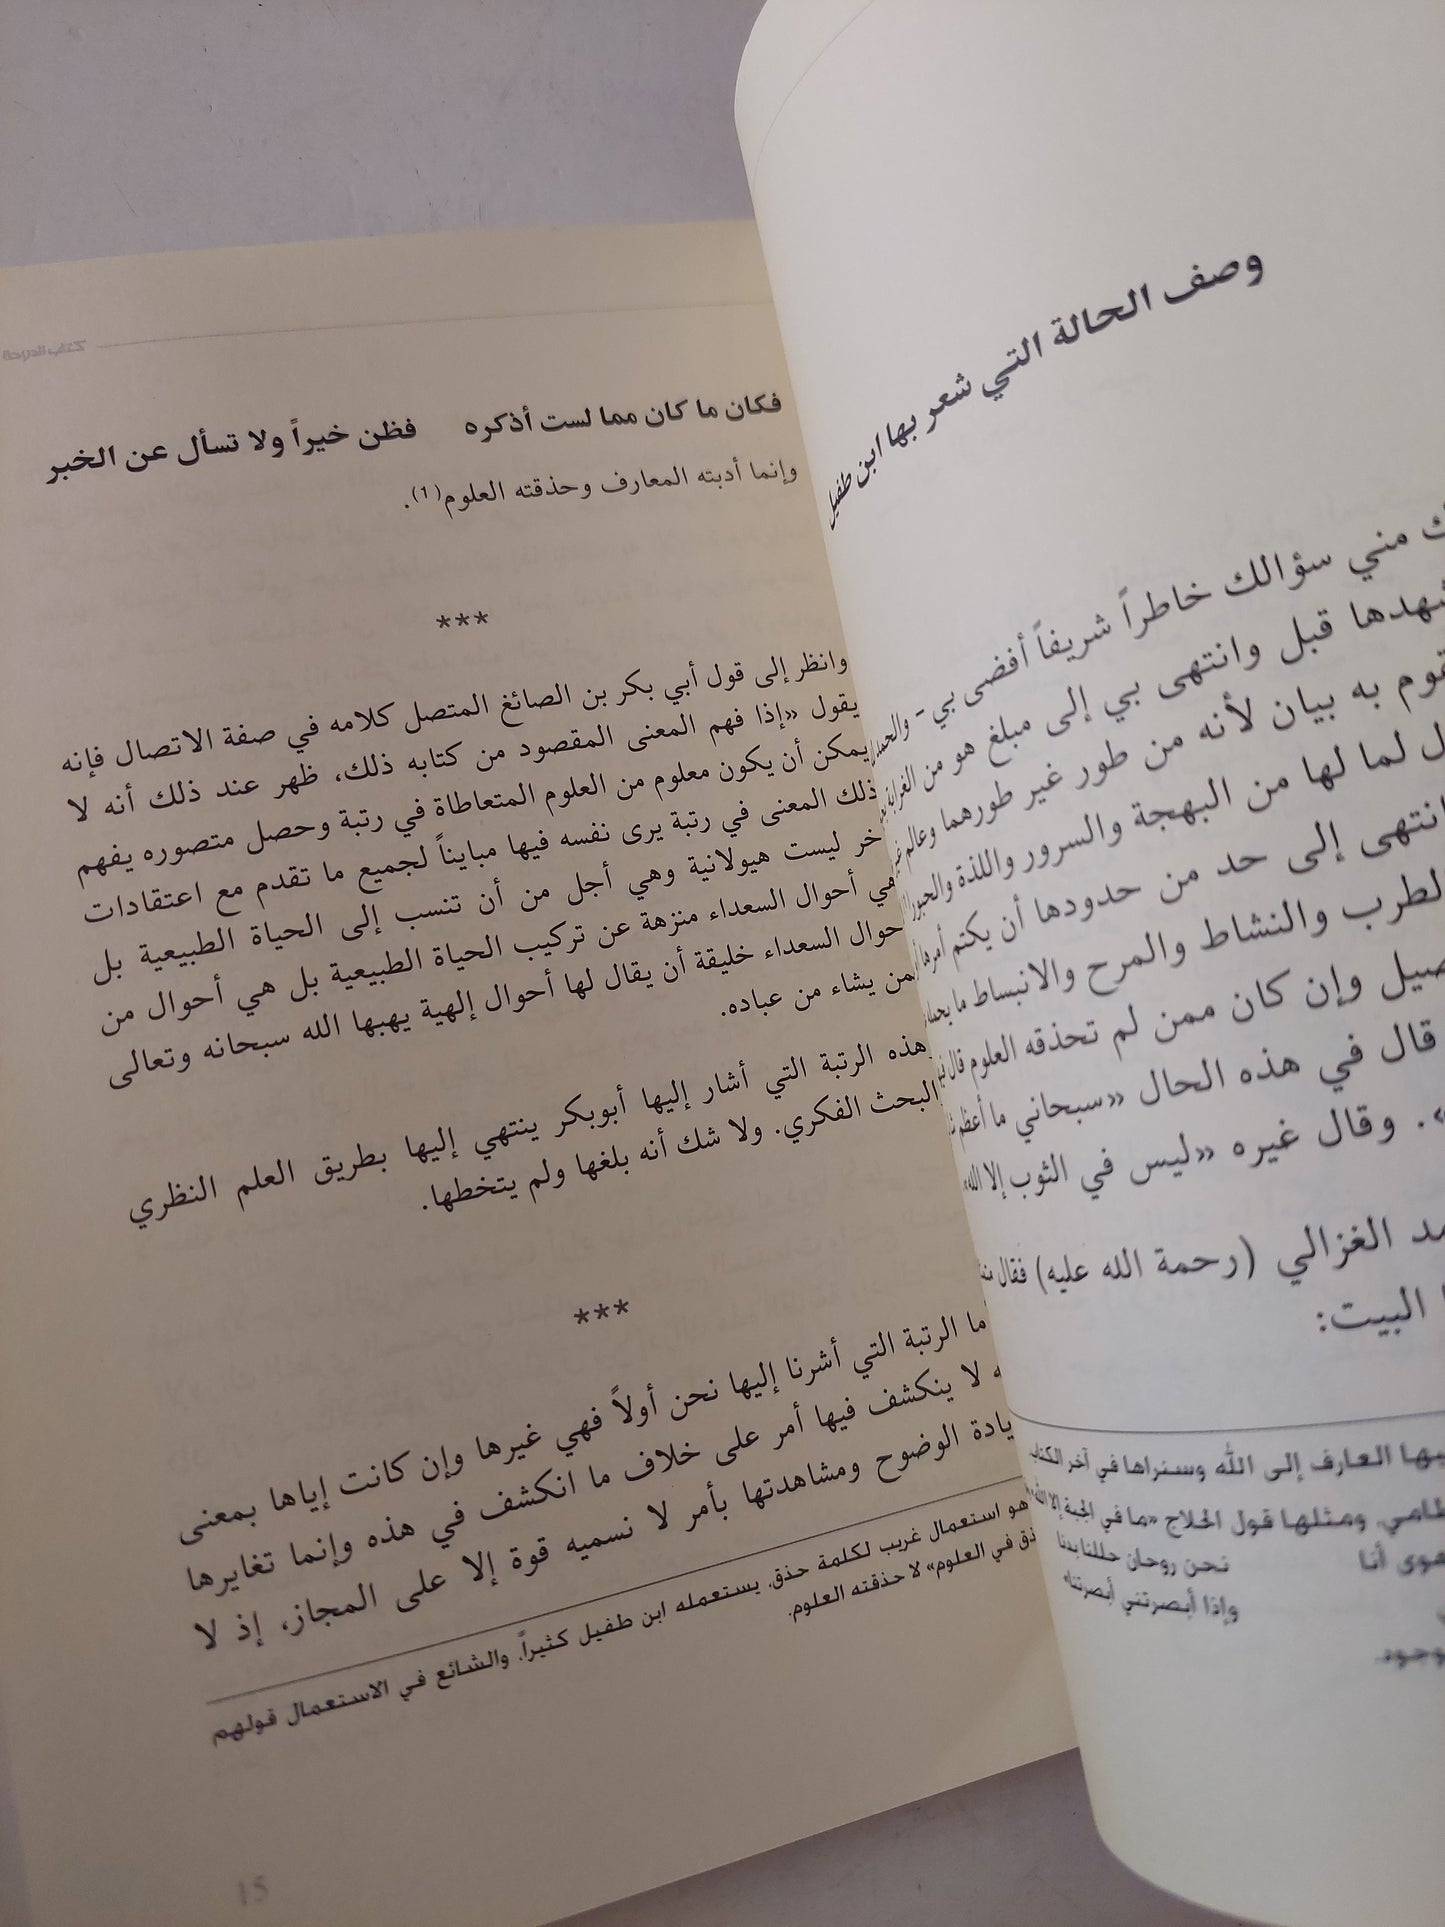 وصف الحالة التي شعر بها ابن طفيل
مني سؤالك خاطراً شريفاً أفضى بي -
قبل وانتهى بي إلى مبلغ هو من
به بيان لأنه من طور غير طورهما وعالم
لما لها من البهجة والسرور واللذة والحبور
انتهى إلى حد من حدودها أن يكتم أمرها
الطرب والنشاط والمرح والانبساط ما
وإن كان ممن لم تحذقه العلوم قال
قال في هذه الحال «سبحاني ما أعظم
». وقال غيره «ليس في الثوب إلا الله».
الغزالي (رحمة الله عليه) فقال
البيت:
العارف إلى الله وسنراها في آخر الكتاب
ومثلها قول الحلاج «ما في الجبة إلا الله»
أنا نحن روحان حللنا بدنا
وإذا أبصرتني أبصرتنا»
كتاب الدوحة
فكان ما كان مما لست أذكره فظن خيراً ولا تسأل عن الخبر
وإنما أدبته المعارف وحذقته العلوم(1).
***
وانظر إلى قول أبي بكر بن الصائغ المتصل كلامه في صفة الاتصال فإنه
يقول «إذا فهم المعنى المقصود من كتابه ذلك، ظهر عند ذلك أنه لا
يمكن أن يكون معلوم من العلوم المتعاطاة في رتبة وحصل متصوره يفهم
ذلك المعنى في رتبة يرى نفسه فيها مبايناً لجميع ما تقدم مع اعتقادات
ليست هيولانية وهي أجل من أن تنسب إلى الحياة الطبيعية بل
هي أحوال السعداء منزهة عن تركيب الحياة الطبيعية بل هي أحوال من
أحوال السعداء خليقة أن يقال لها أحوال إلهية يهبها الله سبحانه وتعالى
لمن يشاء من عباده.
وهذه الرتبة التي أشار إليها أبوبكر ينتهي إليها بطريق العلم النظري
والبحث الفكري. ولا شك أنه بلغها ولم يتخطها.
***
الرتبة التي أشرنا إليها نحن أولاً فهي غيرها وإن كانت إياها بمعنى
لا ينكشف فيها أمر على خلاف ما انكشف في هذه وإنما تغايرها
الوضوح ومشاهدتها بأمر لا نسميه قوة إلا على المجاز، إذ لا
هو استعمال غريب لكلمة حذق، يستعمله ابن طفيل كثيراً، والشائع في الاستعمال قولهم
في العلوم» لا حذقته العلوم.
15